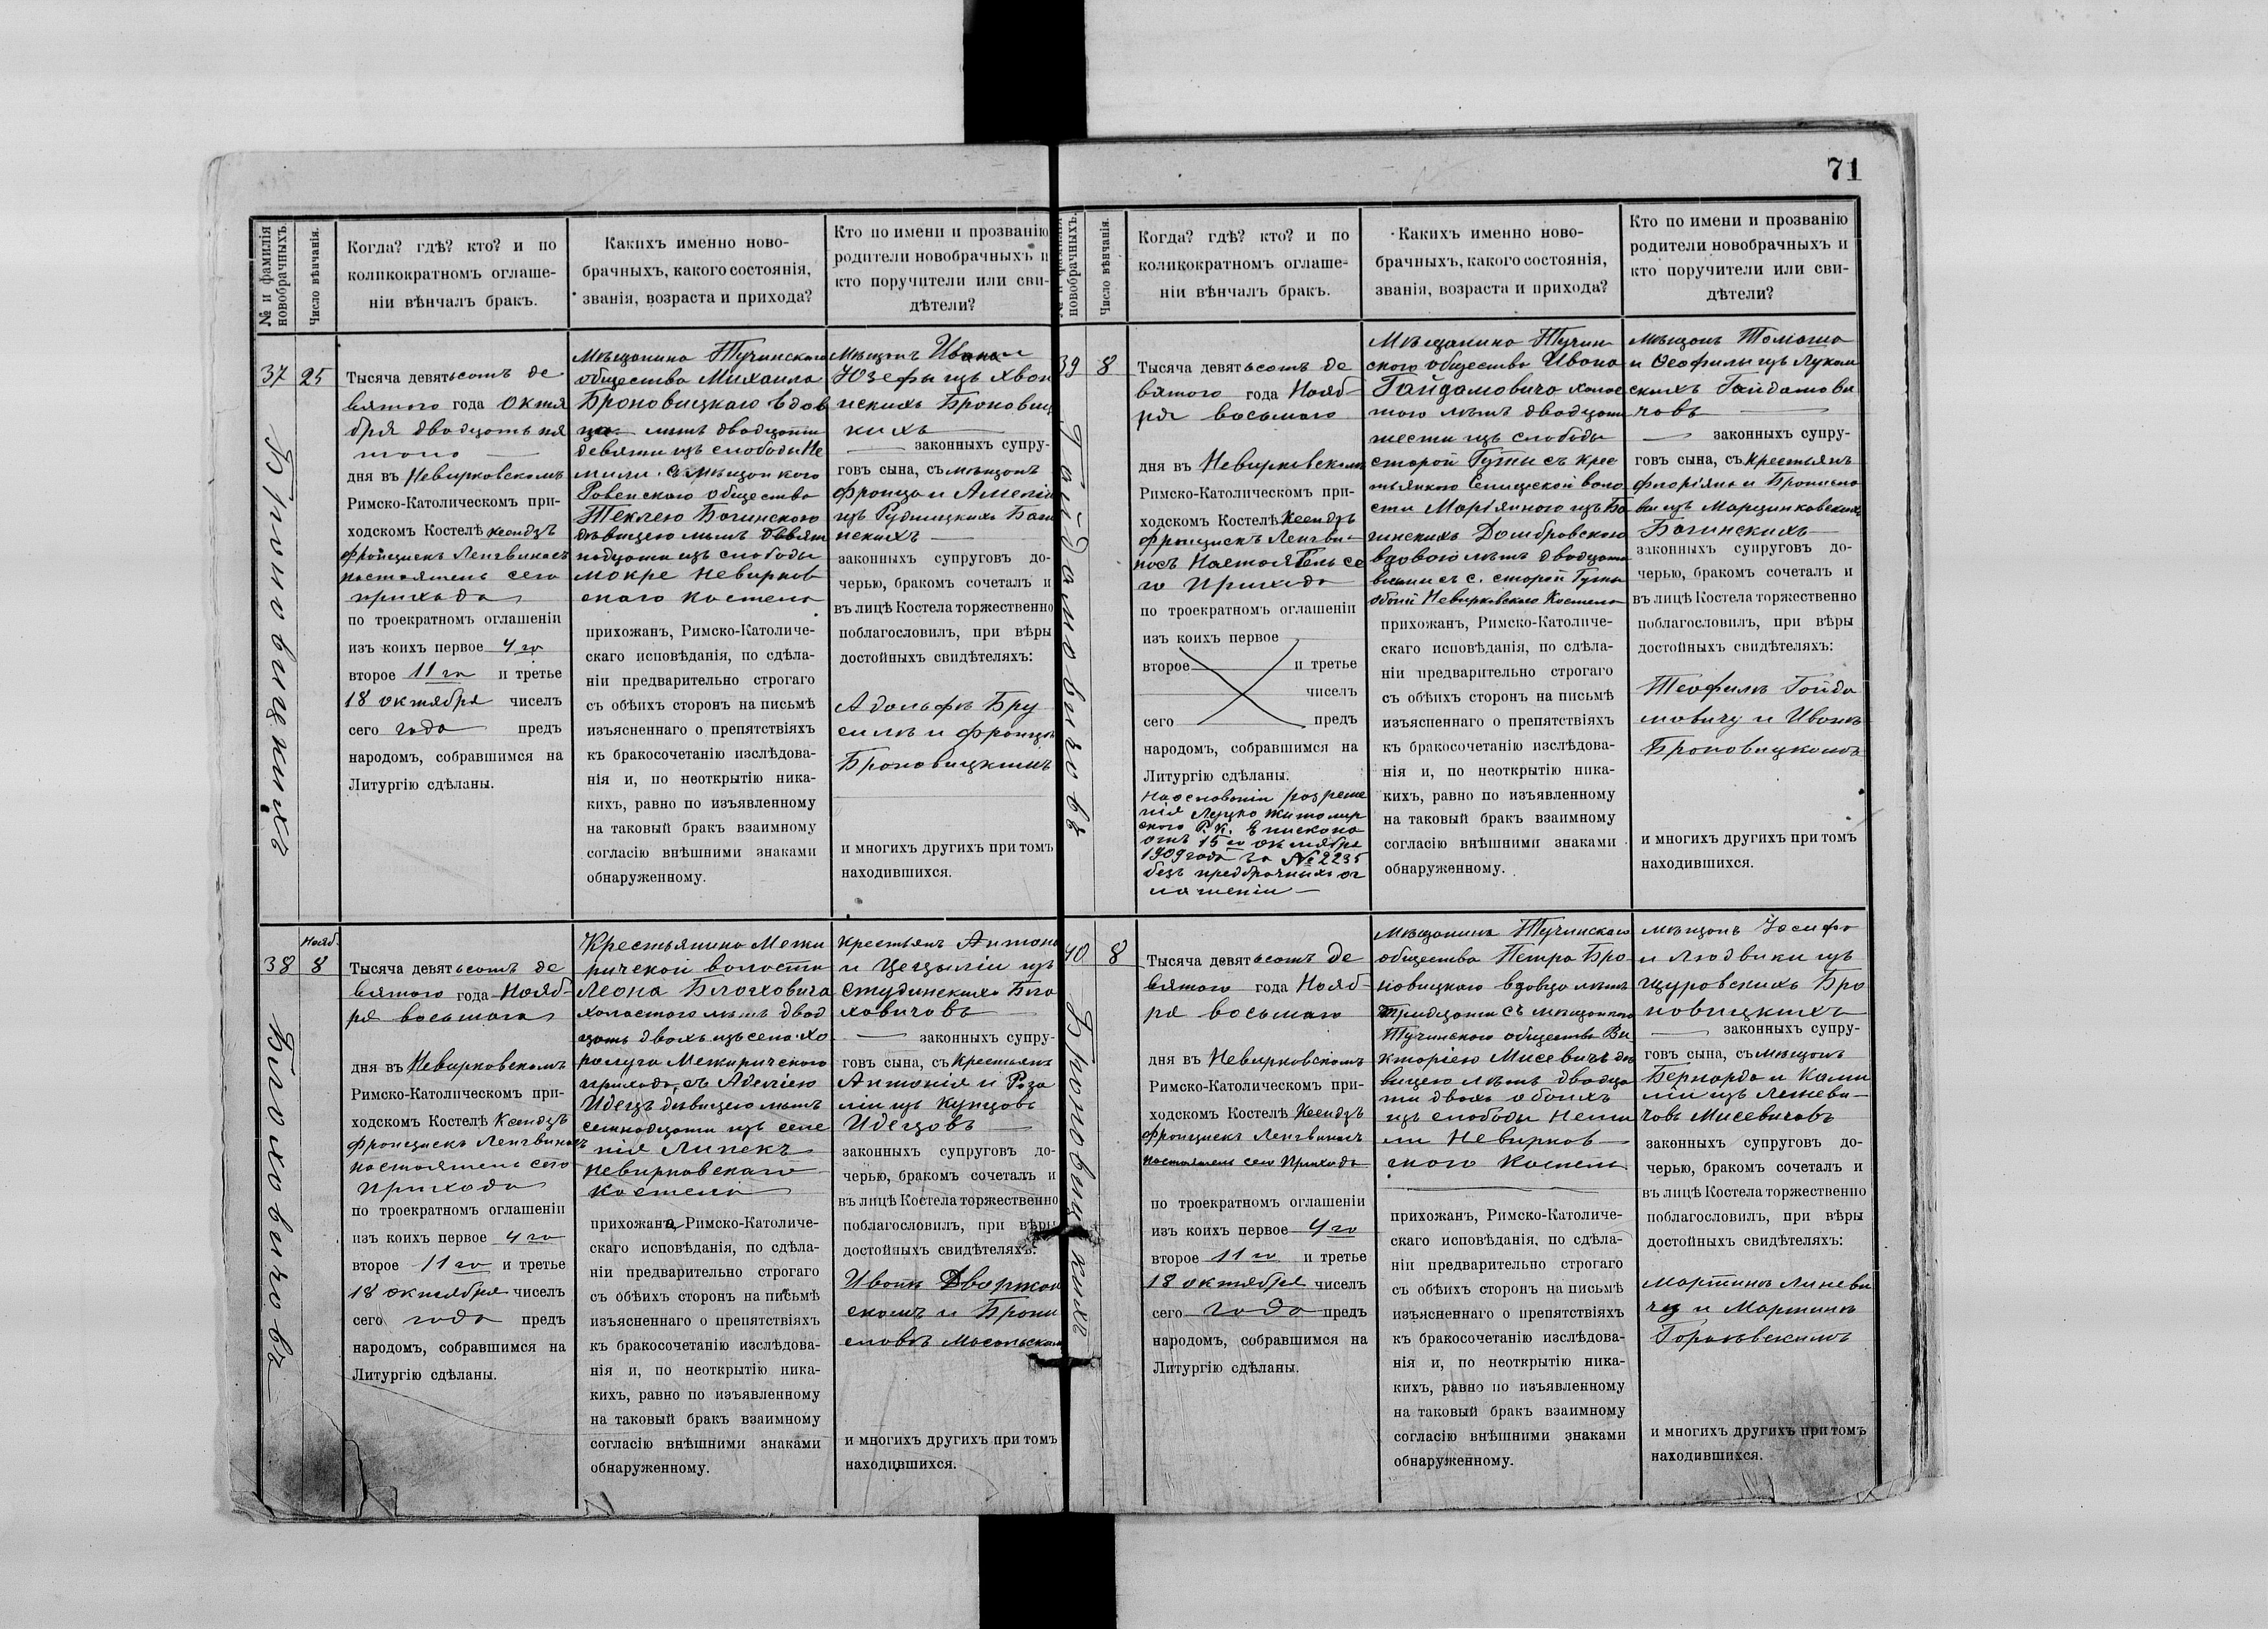 71
№ и фамилія
новобрачныхъ.
Число вѣнчанія.
Когда? гдѣ? кто? и по
коликократномъ оглаше-
ніи вѣнчалъ бракъ.
Какихъ именно ново-
брачныхъ, какого состоянія,
званія, возраста и прихода?
Кто по имени и прозванію
родители новобрачныхъ и
кто поручители или сви-
дѣтели?
37
25
Броновицкихъ
Тысяча девятьсотъ де
вятого года Октя
бря двадцать пя
того
дня въ Невирковскомъ
Римско-Католическомъ при-
ходскомъ Костелѣ Ксендзъ
Францискъ Ленгвинасъ
настоятель сего
прихода
по троекратномъ оглашеніи
изъ коихъ первое 4 го
второе 11 го и третье
18 октября чиселъ
сего года предъ
народомъ, собравшимся на
Литургію сдѣланы.
Мѣщанина Тучинскаго
общества Михаила
Броновицкаго вдов
ца лѣтъ двадцати
девяти изъ слободы Не
мили съ мѣщанкою
Ровенскаго общества
Теклею Багинскою
дѣвицею лѣтъ девят
надцати изъ слободы
Мокре Невирков
скаго костела
прихожанъ, Римско-Католиче-
скаго исповѣданія, по сдѣла-
ніи предварительно строгаго
съ обѣихъ сторонъ на письмѣ
изъясненнаго о препятствіяхъ
къ бракосочетанію изслѣдова-
нія и, по неоткрытію ника-
кихъ, равно по изъявленному
на таковый бракъ взаимному
согласію внѣшними знаками
обнаруженному.
Мѣщанъ Ивана и
Юзефы изъ Хвои
нскихъ Броновиц
кихъ
законныхъ супру-
говъ сына, съ мѣщанъ
Франца и Амеліи
изъ Рудницкихъ Баги
нскихъ
законныхъ супруговъ до-
черью, бракомъ сочеталъ и
въ лицѣ Костела торжественно
поблагословилъ, при вѣры
достойныхъ свидѣтеляхъ:
Адольфѣ Бру
силѣ и Францѣ
Броновицкимъ
и многихъ другихъ при томъ
находившихся.
38
Нояб.
8
Блоховичовъ
Тысяча девятьсотъ де
вятого года Нояб
ря восьмаго
дня въ Невирковскомъ
Римско-Католическомъ при-
ходскомъ Костелѣ Ксендзъ
Францискъ Ленгвинасъ
настоятель сего
прихода
по троекратномъ оглашеніи
изъ коихъ первое 4 го
второе 11 го и третье
18 октября чиселъ
сего года предъ
народомъ, собравшимся на
Литургію сдѣланы.
Крестьянина Межи
ричской волости
Леона Блоховича
холостого лѣтъ двад
цать двохъ изъ села Хо
ролуга Межиричского
прихода, съ Аделіею
Идецъ дѣвицею лѣтъ
семнадцати изъ селе
нія Липекъ
Невирковскаго
костела
прихожанъ, Римско-Католиче-
скаго исповѣданія, по сдѣла-
ніи предварительно строгаго
съ обѣихъ сторонъ на письмѣ
изъясненнаго о препятствіяхъ
къ бракосочетанію изслѣдова-
нія и, по неоткрытію ника-
кихъ, равно по изъявленному
на таковый бракъ взаимному
согласію внѣшними знаками
обнаруженному.
Крестьянъ Антона
и Цециліи изъ
Студинскихъ Бло
ховичовъ
законныхъ супру-
говъ сына, съ Крестьянъ
Антонія и Роза
ліи изъ Купцовъ
Идецовъ
законныхъ супруговъ до-
черью, бракомъ сочеталъ и
въ лицѣ Костела торжественно
поблагословилъ, при вѣры
достойныхъ свидѣтеляхъ:
Иванѣ Дворжон
скомъ и Брони
славѣ Масальском
и многихъ другихъ при томъ
находившихся.
новобрачныхъ.
Число вѣнчанія.
Когда? гдѣ? кто? и по
коликократномъ оглаше-
ніи вѣнчалъ бракъ.
Какихъ именно ново-
брачныхъ, какого состоянія,
званія, возраста и прихода?
Кто по имени и прозванію
родители новобрачныхъ и
кто поручители или сви-
дѣтели?
39
8
Гайдамовичовъ
Тысяча девятьсотъ де
вятого года Нояб
ря восьмаго
дня въ Невирковскомъ
Римско-Католическомъ при-
ходскомъ Костелѣ Ксендзъ
Францискъ Ленгви-
насъ Настоятель се
го прихода
по троекратномъ оглашеніи
изъ коихъ первое
второе и третье
чиселъ
сего предъ
народомъ, собравшимся на
Литургію сдѣланы.
На основаніи разреше
нія Луцко Житомир
ского Р. К. Епископа
отъ 15 го октября
1909 года за № 2235
безъ предбрачныхъ ог
лашеніи
Мѣщанина Тучин
ского общества Ивана
Гайдамовича холос
того лѣтъ двадцати
шести изъ слободы
старой Гуты съ крес
тьянкою Селищской воло
сти Маріянною изъ Ба
гинскихъ Домбровскою
вдовою лѣтъ двадцати
восьми съ с. старой Гуты
обоий Невирковскаго Костела
прихожанъ, Римско-Католиче-
скаго исповѣданія, по сдѣла-
ніи предварительно строгаго
съ обѣихъ сторонъ на письмѣ
изъясненнаго о препятствіяхъ
къ бракосочетанію изслѣдова-
нія и, по неоткрытію ника-
кихъ, равно по изъявленному
на таковый бракъ взаимному
согласію внѣшними знаками
обнаруженному.
Мѣщанъ Томаша
и Ѳеофилы изъ Лукаш
скихъ Гайдамови
човъ
законныхъ супру-
говъ сына, съ Крестьянъ
Флоріяна и Бронисла
вы изъ Марцинковскихъ
Багинскихъ
законныхъ супруговъ до-
черью, бракомъ сочеталъ и
въ лицѣ Костела торжественно
поблагословилъ, при вѣры
достойныхъ свидѣтеляхъ:
Теофилѣ Гайда
мовичу и Иванѣ
Броновицкомъ
и многихъ другихъ при томъ
находившихся.
40
8
Броновицкихъ
Тысяча девятьсотъ де
вятого года Нояб
ря восьмаго
дня въ Невирковскомъ
Римско-Католическомъ при-
ходскомъ Костелѣ Ксендзъ
Францискъ Ленгвинасъ
настоятель сего прихода
по троекратномъ оглашеніи
изъ коихъ первое 4 го
второе 11 го и третье
18 октября чиселъ
сего года предъ
народомъ, собравшимся на
Литургію сдѣланы.
Мѣщанина Тучинскаго
общества Петра Бро
новицкаго вдовца лѣтъ
тридцати съ мѣщанкою
Тучинского общества Ви
кторіею Мисевичъ дѣ
вицею лѣтъ двадца
ти двохъ обоихъ
изъ слободы Неми
ли Невирков
ского костела
прихожанъ, Римско-Католиче-
скаго исповѣданія, по сдѣла-
ніи предварительно строгаго
съ обѣихъ сторонъ на письмѣ
изъясненнаго о препятствіяхъ
къ бракосочетанію изслѣдова-
нія и, по неоткрытію ника-
кихъ, равно по изъявленному
на таковый бракъ взаимному
согласію внѣшними знаками
обнаруженному.
мѣщанъ Іосифа
и Людвики изъ
Щуровскихъ Бро
новицкихъ
законныхъ супру-
говъ сына, съ мѣщанъ
Бернарда и Ками
ліи изъ Линеви-
човъ Мисевичовъ
законныхъ супруговъ до-
черью, бракомъ сочеталъ и
въ лицѣ Костела торжественно
поблагословилъ, при вѣры
достойныхъ свидѣтеляхъ:
Мартинѣ Линеви
чу и Мартинѣ
Гораковскимъ
и многихъ другихъ при томъ
находившихся.